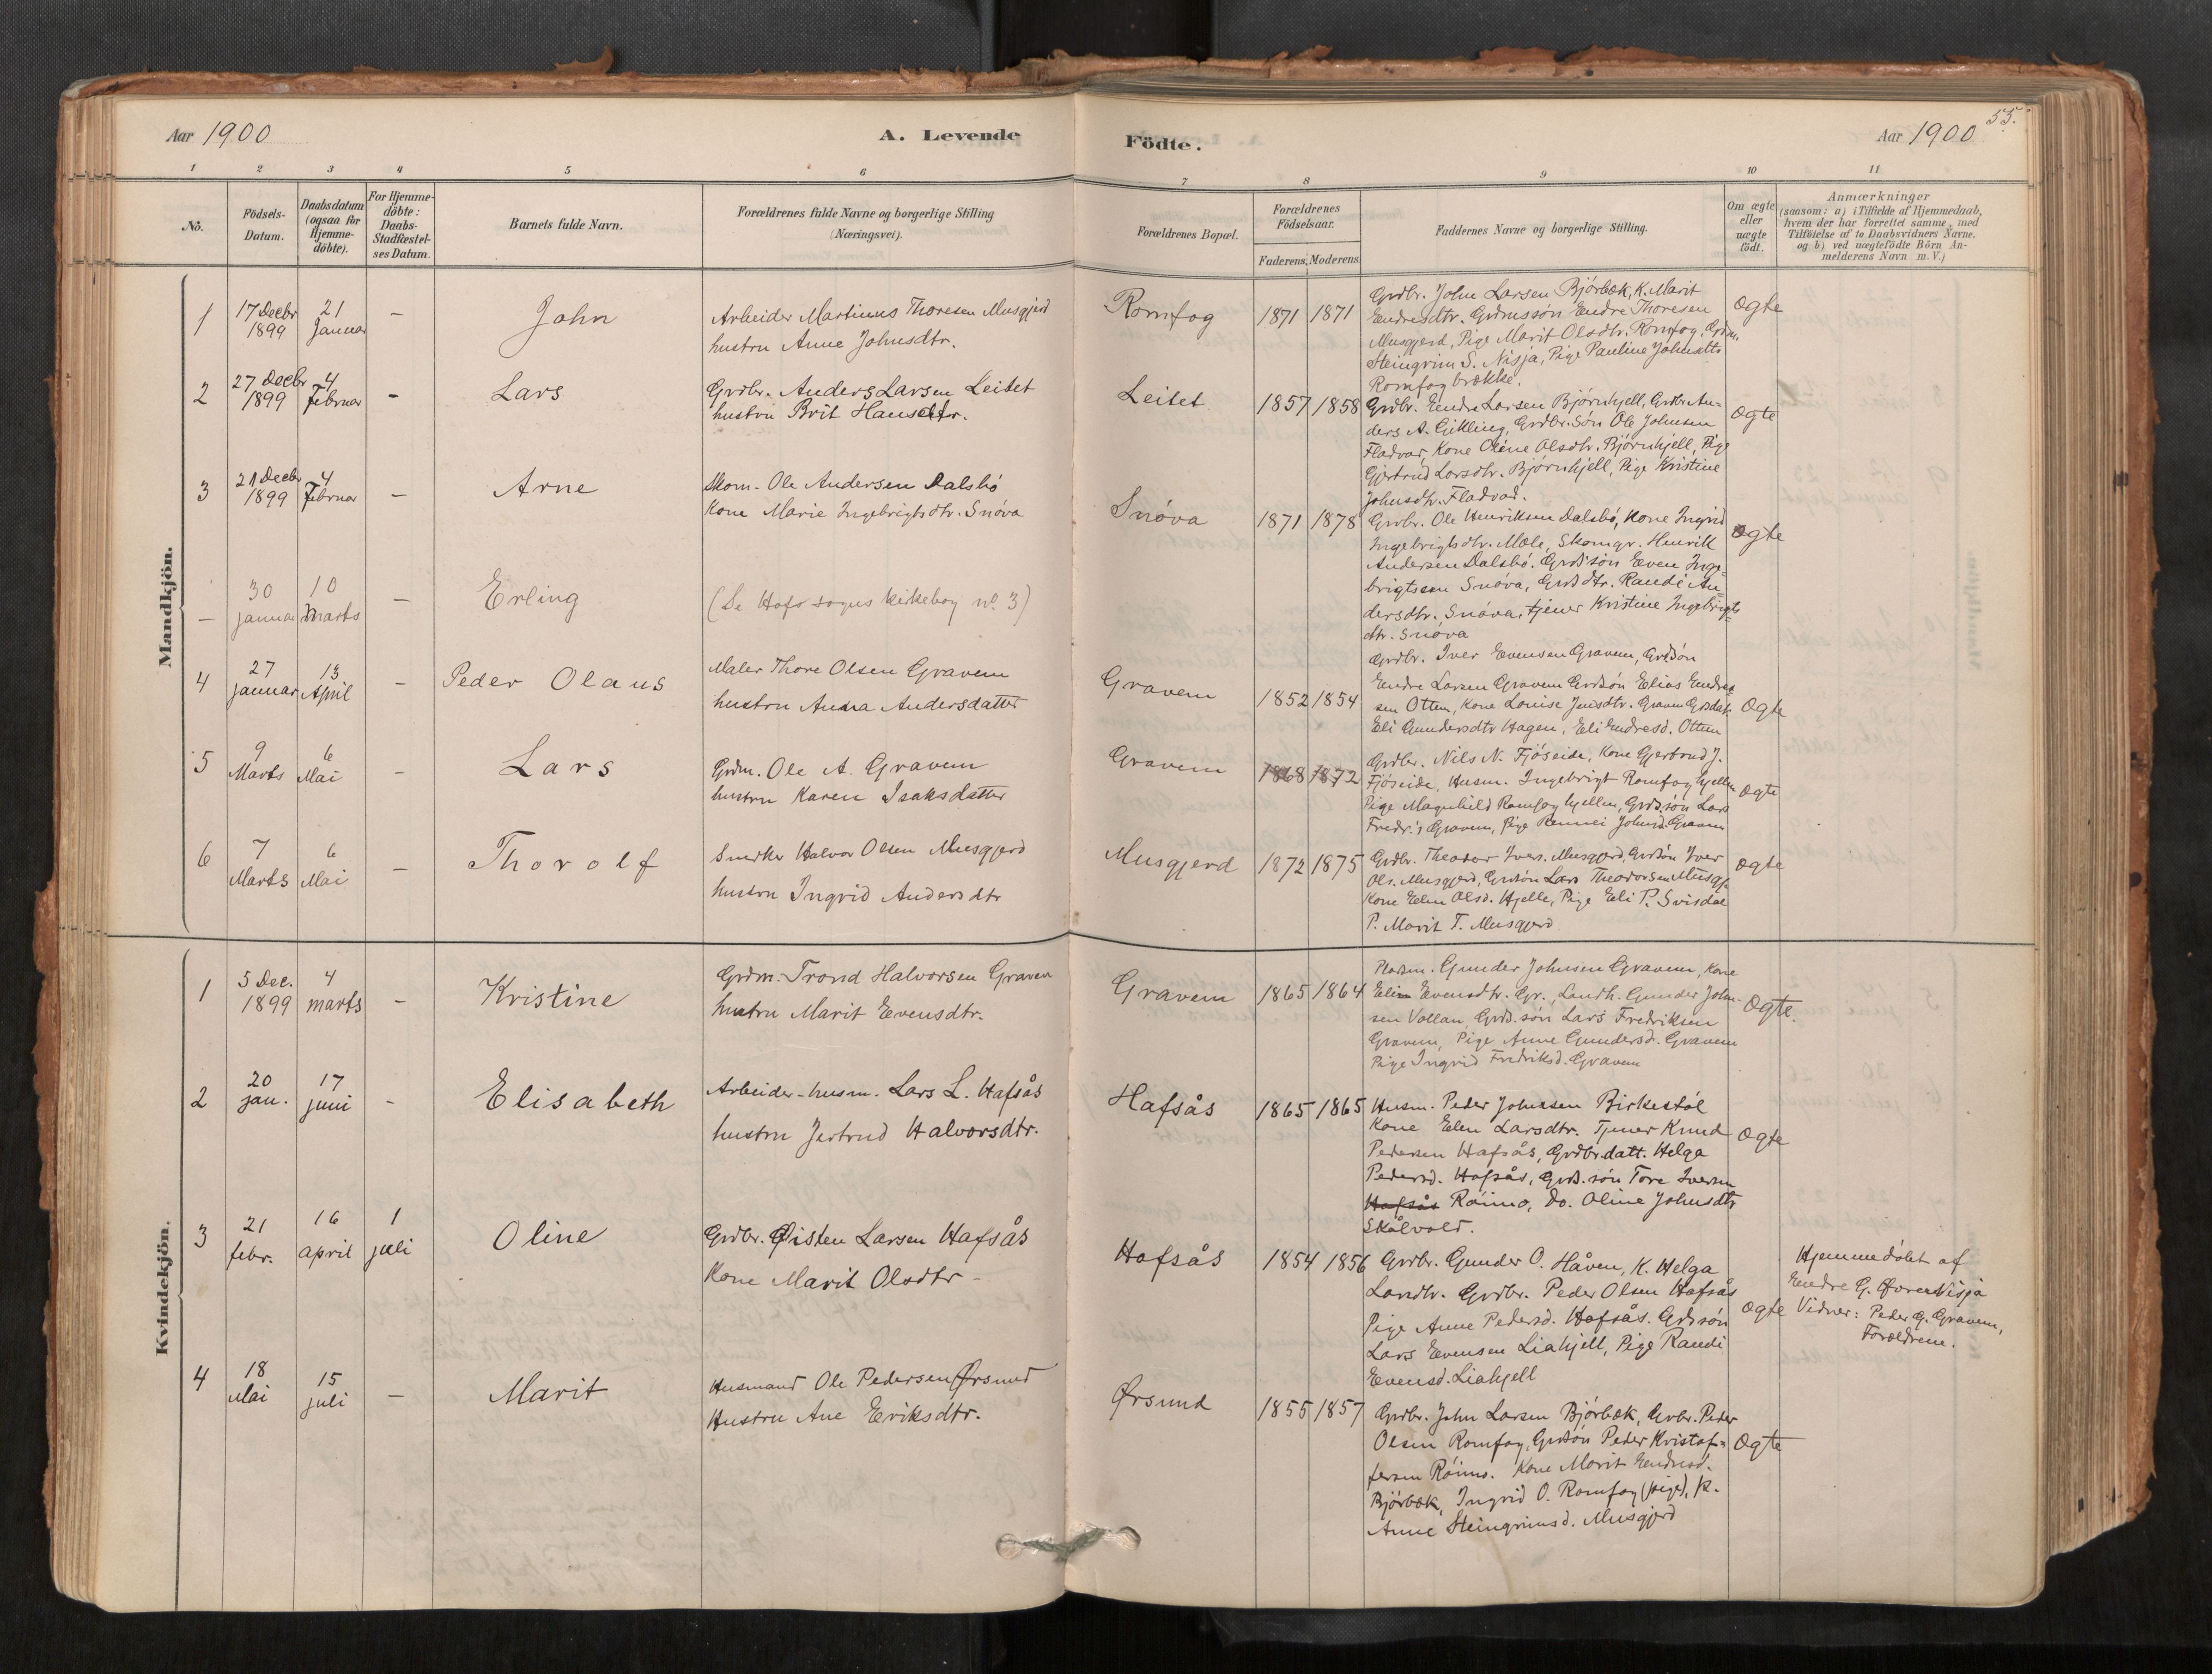 Aar 1900
A. Levende
Födte.
Aar 1900
55.
1 2 3 4 5 6 7 8 9 10 11
No.
Födsels-
Datum.
Daabsdatum
(ogsaa for
Hjemme-
döbte).
For Hjemme-
döbte:
Daabs-
Stadfæstel-
ses Datum.
Barnets fulde Navn.
Forældrenes fulde Navne og borgerlige Stilling
(Næringsvei).
Forældrenes Bopæl.
Forældrenes
Födselsaar.
Faderens. Moderens.
Faddernes Navne og borgerlige Stilling.
Om ægte
eller
uægte
födt.
Anmærkninger
(saasom: a) i Tilfælde af Hjemmedaab,
hvem der har forrettet samme, med
Tilföielse af to Daabsvidners Navne,
og b) ved uægtefödte Börn An-
melderens Navn m. V.)
Mandkjön.
1
17 Decbr
1899
21
Januar
–
John
Arbeider Martinus Thoresen Musgjerd
hustru Anne Johnsdtr.
Romfog
1871 1871
Grdbr. John Larsen Bjørbæk, K. Marit
Endresdtr. Grdmssøn Endre Thoresen
Musgjerd, Pige Marit Olsdtr. Romfog, Grdm.
Steingrim S. Nisja, Pige Pauline Johnsdtr
Romfogbrække.
Ægte
2
27 Decbr
1899
4
Februar
-
Lars
Grdbr. Anders Larsen Leitet
hustru Brit Hansdtr.
Leitet
1857 1858
Grdbr. Endre Larsen Bjørnhjell, Grdbr. An-
ders A. Gikling, Grdbr. Søn Ole Johnsen
Fladvad, Kone Oline Olsdtr. Bjørnhjell, Pige
Gjertrud Larsdtr. Bjørnhjell, Pige Kristine
Johnsdtr. Fladvad.
Ægte
3
21 Decbr
1899
4
Februar
–
Arne
Skom. Ole Andersen Dalsbø
Kone Marie Ingebrigtsdtr. Snøva
Snøva
1871 1878
Grdbr. Ole Henriksen Dalsbø, Kone Ingrid
Ingebrigtsdtr. Mæle, Skomgr. Henrik
Andersen Dalsbø. Grdssøn Even Inge-
brigtsen Snøva, Grdsdtr. Randi An-
dersdtr. Snøva, tjener Kristine Ingebrigts-
dtr. Snøva
Ægte
–
30
januar
10
Marts
–
Erling
(Se Hofs sogns kirkebog no. 3)
4
27
januar
13
April
–
Peder Olaus
Maler Thore Olsen Gravem
hustru Anna Andersdatter
Gravem
1852 1854
Grdbr. Iver Evensen Gravem, Grdsøn
Endre Larsen Gravem Grdsøn Elias Endre-
sen Ottem, Kone Louise Jensdtr. Gravem Grdsdat.
Eli Gundersdtr Hagen, Eli Endresd. Ottem
Ægte
5
9
Marts
6
Mai
–
Lars
Grdm. Ole A. Gravem
hustru Karen Isaksdatter
Gravem
1868 1872
Grdbr. Nils N. Fjøseide, Kone Gjertrud J.
Fjøseide, Husm. Ingebrigt Romfoghjellen
Pige Magnhild Romfoghjellen, Grdssøn Lars
Fredr.'s Gravem, Pige Rennei Johnsd. Gravem
Ægte
6
7
Marts
6
Mai
–
Thorolf
Snedker Halvor Olsen Musgjerd
hustru Ingrid Andersdtr
Musgjerd
1872 1875
Grdbr. Theodor Ivers. Musgjerd, Grdsøn Iver
Ols. Musgjerd, Grdsøn Lars Theodorsen Musgj.
Kone Elen Olsd. Hjelle, Pige Eli P. Svisdal
P. Marit T. Musgjerd
Ægte
Kvindekjön.
1
5 Dec.
1899
4
marts
–
Kristine
Grdm. Trond Halvorsen Gravem
hustru Marit Evensdtr.
Gravem
1865 1864
Pladsm. Gunder Johnsen Gravem, Kone
Eli Evensdtr. Gr., Landh. Gunder John-
sen Vollan, Grds.søn Lars Fredriksen
Gravem, Pige Anne Gundersd. Gravem
Pige Ingrid Fredriksd. Gravem
Ægte.
2
20
jan.
17
juni
-
Elisabeth
Arbeider-husm. Lars L. Hafsås
hustru Jertrud Halvorsdtr.
Hafsås
1865 1865
Husm. Peder Johnsen Birkestøl
Kone Elen Larsdtr. Tjener Knud
Pedersen Hafsås, Grdbr.datt. Helga
Pedersd. Hafsås, Grds.søn Tore Iversen
Hafsås Røimo, Do. Oline Johnsdtr
Skålvold.
Ægte
3
21
febr.
16
april
1
juli
Oline
Grdbr. Øisten Larsen Hafsås
Kone Marit Olsdtr -
Hafsås
1854 1856
Grdbr. Gunder O. Håven, K. Helga
Larsdtr. Grdbr. Peder Olsen Hafsås
Pige Anne Pedersd. Hafsås. Grdsøn
Lars Evensen Liahjell, Pige Randi
Evensd. Liahjell
Ægte
Hjemmedøbt af
Endre G. Øvre Nisja
Vidner: Peder G. Gravem,
Forældrene.
4
18
Mai
15
juli
–
Marit
Husmand Ole Pedersen Ørsund
Hustru Ane Eriksdtr.
Ørsund
1855 1857
Grdbr. John Larsen Bjørbæk, Grbr. Peder
Olsen Romfog, Grdsøn Peder Kristof-
fersen Røimo. Kone Marit Endresd.
Bjørbæk, Ingrid O. Romfog (pige), K.
Anne Steingrimsd. Musgjerd
Ægte